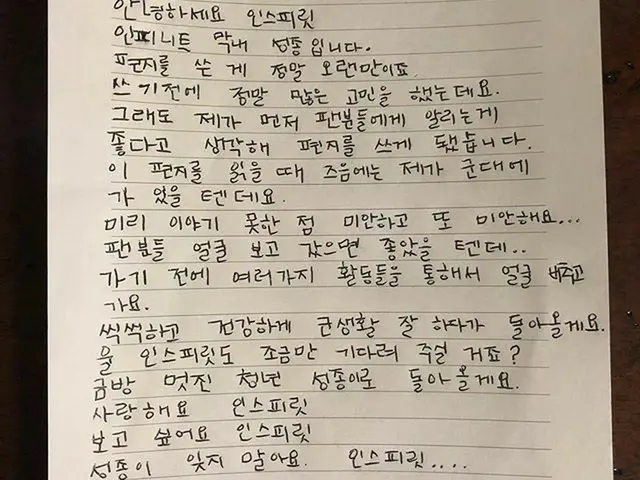 안녕하세요 인스피릿
인피니트 막내 성종입니다.
편지를 쓴 게 정말 오랜만이죠.
쓰기전에 정말 많은 고민을 했는데요.
그래도 제가 먼저 팬분들에게 알리는게
좋다고 생각해 편지를 쓰게 됐습니다.
이 편지를 읽을 때 즈음에는 제가 군대에
가 있을 텐데요.
미리 이야기 못한 점 미안하고 또 미안해요...
팬분들 얼굴 보고 갔으면 좋았을 텐데..
가기 전에 여러가지 활동들을 통해서 얼굴 비추고
가요.
씩씩하고 건강하게 군생활 잘 하다가 돌아올게요.
울 인스피릿도 조금만 기다려 주실 거죠?
금방 멋진 청년 성종이로 돌아올게요.
사랑해요 인스피릿
보고 싶어요 인스피릿
성종이 잊지 말아요. 인스피릿....